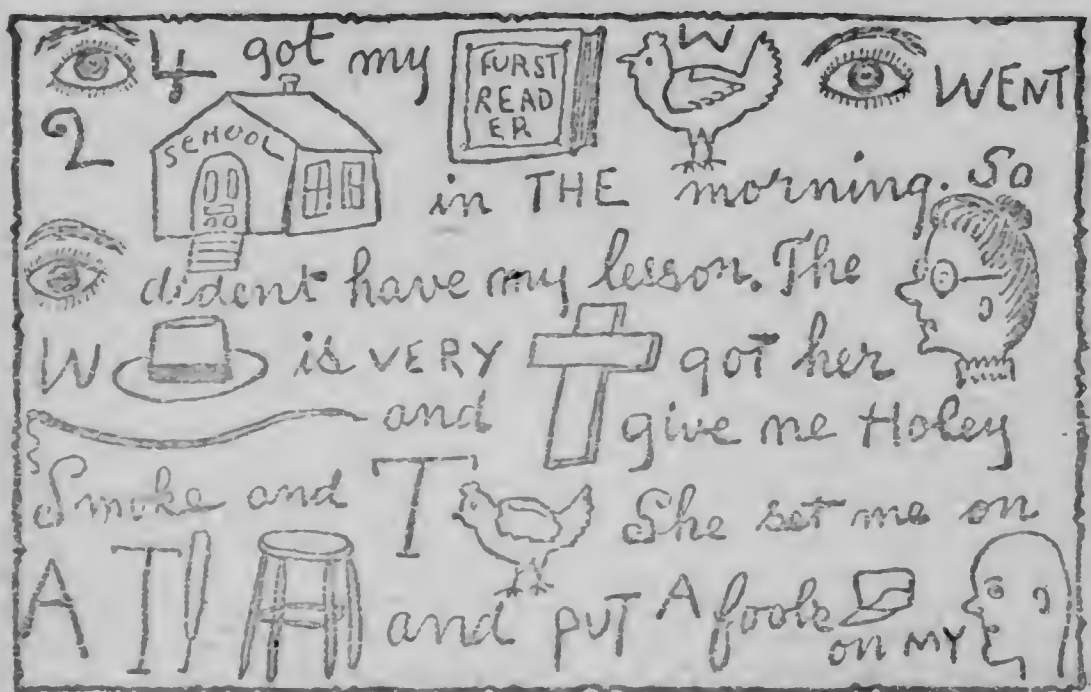 4 got my FURST READ ER W WENT
2 SCHOOL in THE morning. So
dident have my lesson. The
W is VERY got her
and give me Holey
Smoke and T She set me on
A T and PUT A foole on MY